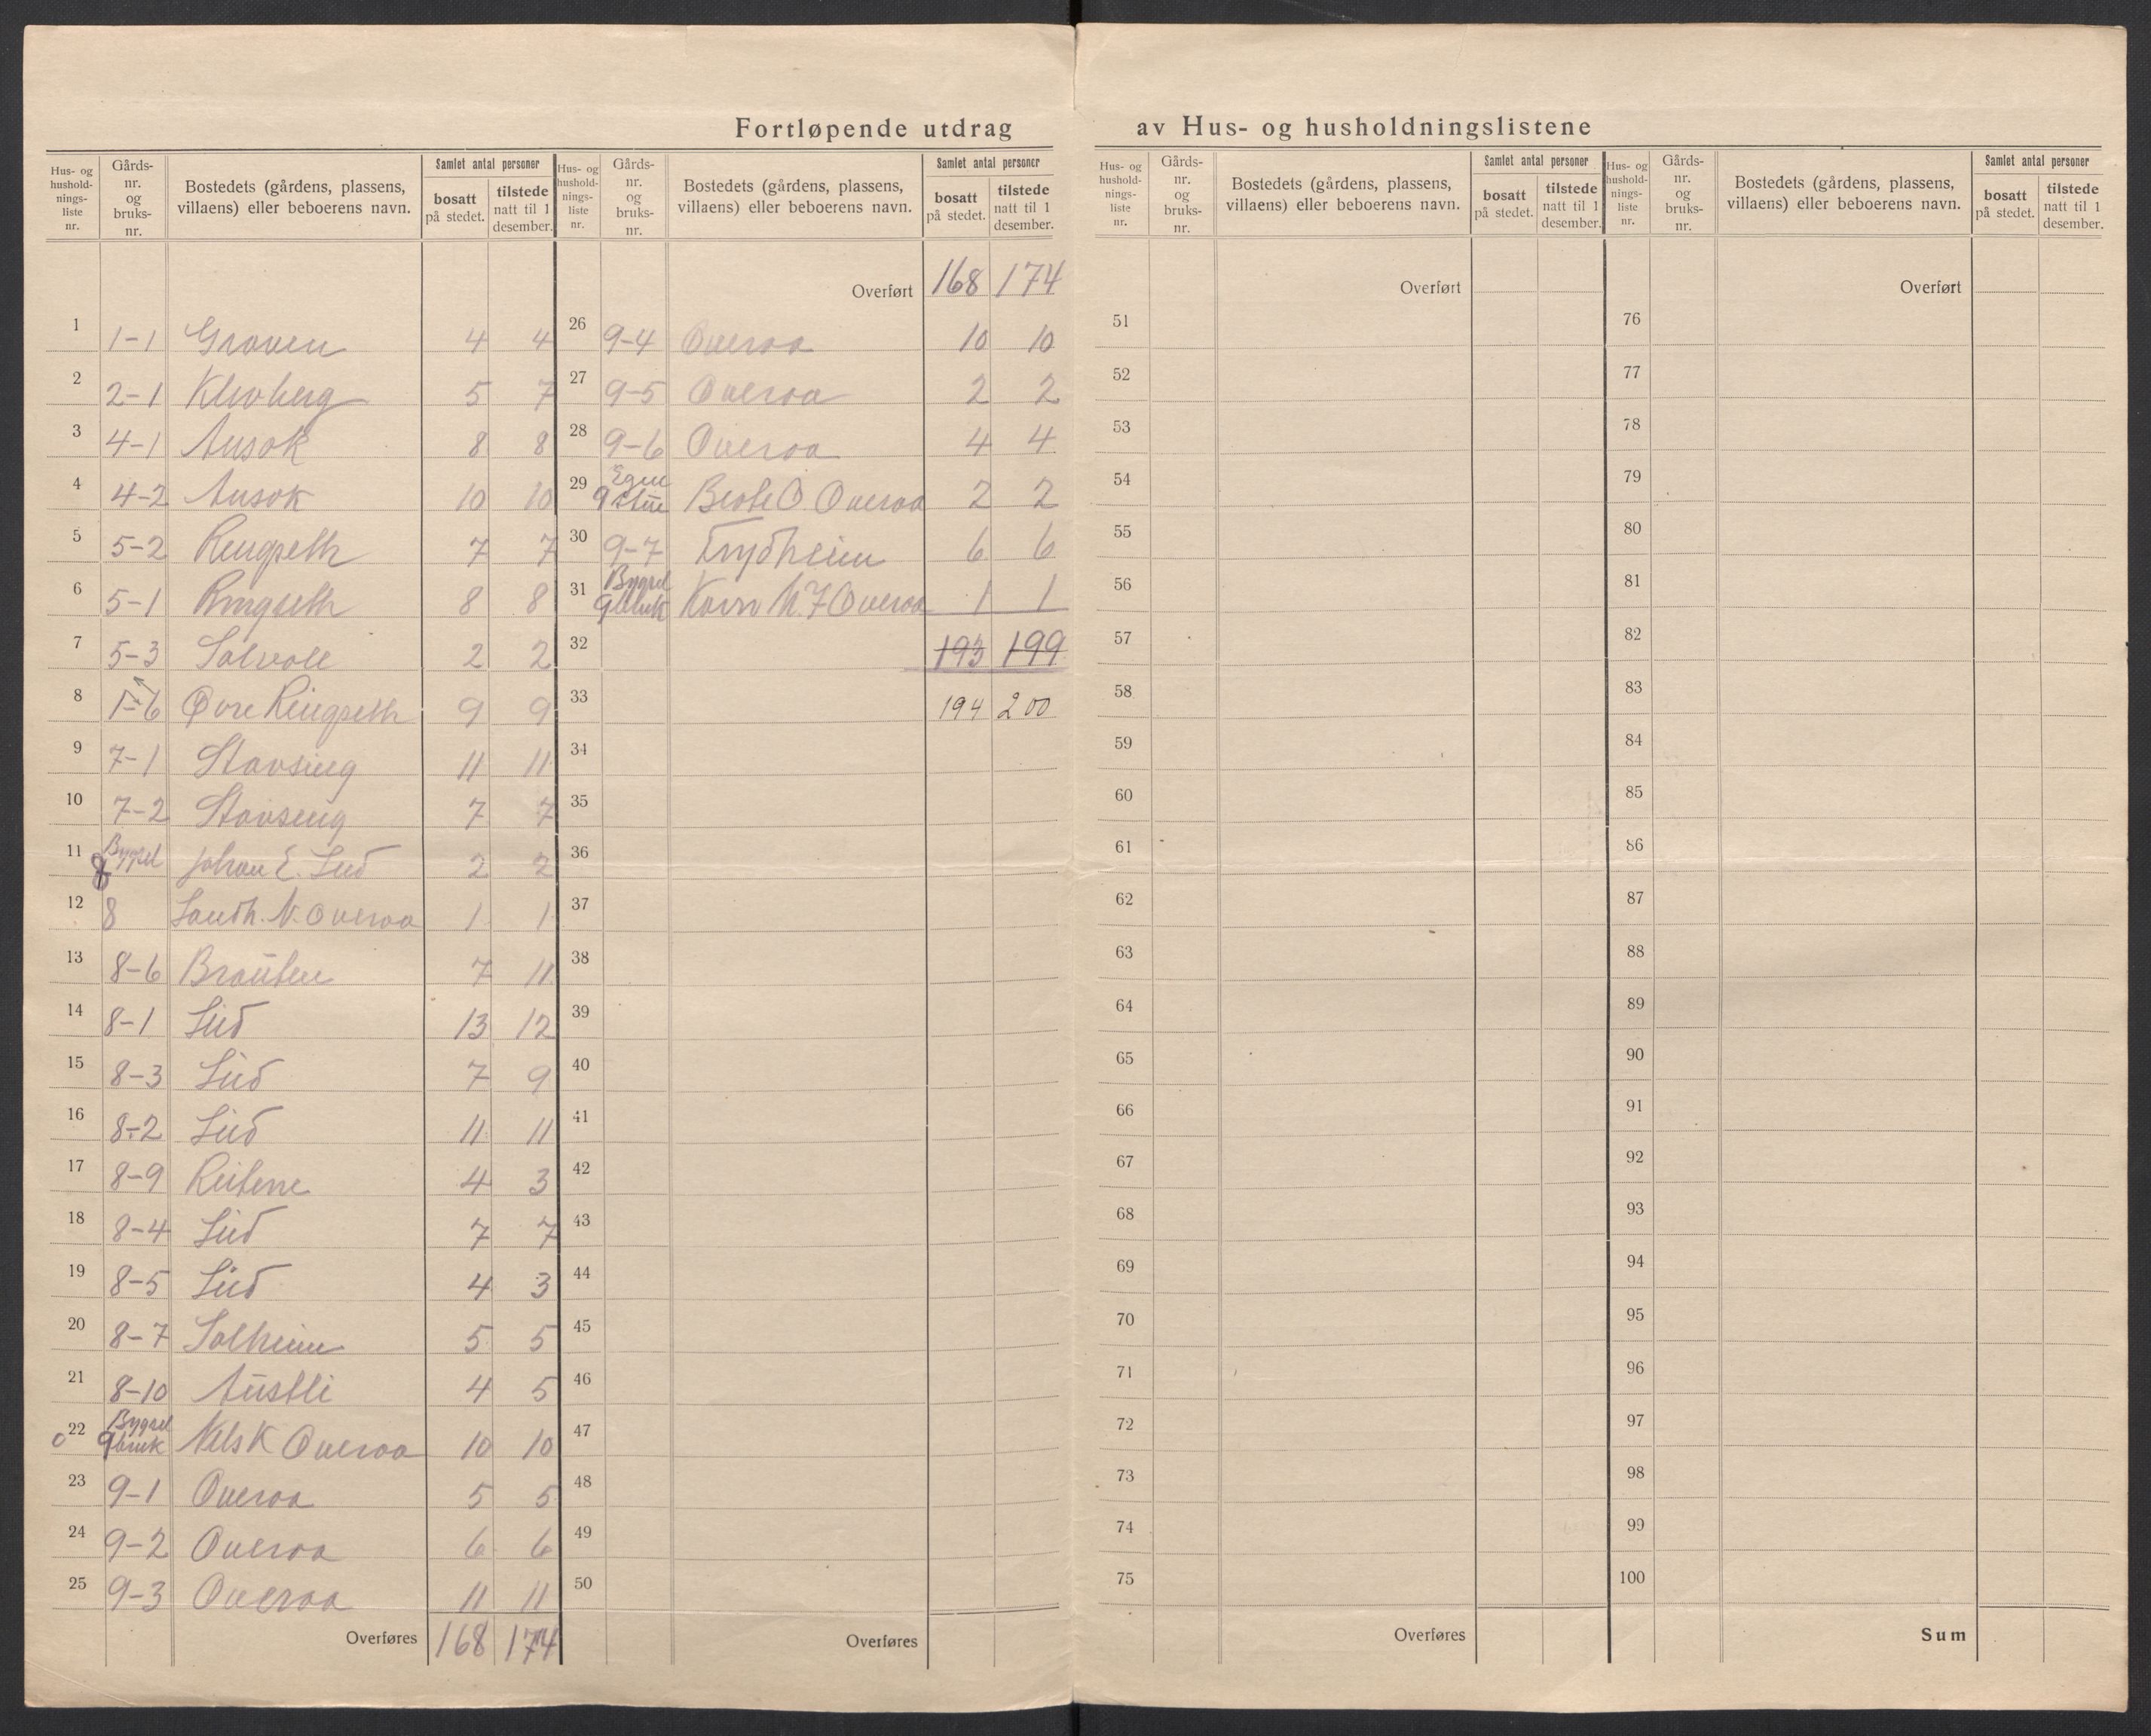 Fortløpende utdrag av Hus- og husholdningslistene
Hus- og hushold- nings- liste nr. Gårds- nr. og bruks- nr. Bostedets (gårdens, plassens, villaens) eller beboerens navn. Samlet antal personer bosatt på stedet. tilstede natt til 1 desember.
Hus- og hushold- nings- liste nr. Gårds- nr. og bruks- nr. Bostedets (gårdens, plassens, villaens) eller beboerens navn. Samlet antal personer bosatt på stedet. tilstede natt til 1 desember.
Hus- og hushold- nings- liste nr. Gårds- nr. og bruks- nr. Bostedets (gårdens, plassens, villaens) eller beboerens navn. Samlet antal personer bosatt på stedet. tilstede natt til 1 desember.
Hus- og hushold- nings- liste nr. Gårds- nr. og bruks- nr. Bostedets (gårdens, plassens, villaens) eller beboerens navn. Samlet antal personer bosatt på stedet. tilstede natt til 1 desember.
1 1-1 Graven 4 4
2 2-1 Klovberg 5 7
3 4-1 Ansok 8 8
4 4-2 Ansok 10 10
5 5-2 Ringseth 7 7
6 5-1 Ringseth 8 8
7 5-3 Solvoll 2 2
8 Øvre Ringseth 9 9
9 7-1 Stavseng 11 11
10 7-2 Stavseng 7 7
11 Bygsel 8 Johan E. Lid 2 2
12 8 N. Overaa 1 1
13 8-6 Brauten 7 11
14 8-1 Lid 13 12
15 8-3 Lid 7 9
16 8-2 Lid 11 11
17 8-9 Reitene 4 3
18 8-4 Lid 7 7
19 8-5 Lid 4 3
20 8-7 Solheim 5 5
21 8-10 Austli 4 5
22 Bygsel 9 bruk Nels K Overaa 10 10
23 9-1 Overaa 5 5
24 9-2 Overaa 6 6
25 9-3 Overaa 11 11
Overføres 168 174
Overført 168 174
26 9-4 Overaa 10 10
27 9-5 Overaa 2 2
28 9-6 Overaa 4 4
29 Egen 9 stue O. Overaa 2 2
30 9-7 Frydheim 6 6
31 Bygsel 9 bruk Overaa 1 1
32 193 199
33 194 200
34
35
36
37
38
39
40
41
42
43
44
45
46
47
48
49
50
Overføres
Overført
51
52
53
54
55
56
57
58
59
60
61
62
63
64
65
66
67
68
69
70
71
72
73
74
75
Overføres
Overført
76
77
78
79
80
81
82
83
84
85
86
87
88
89
90
91
92
93
94
95
96
97
98
99
100
Sum